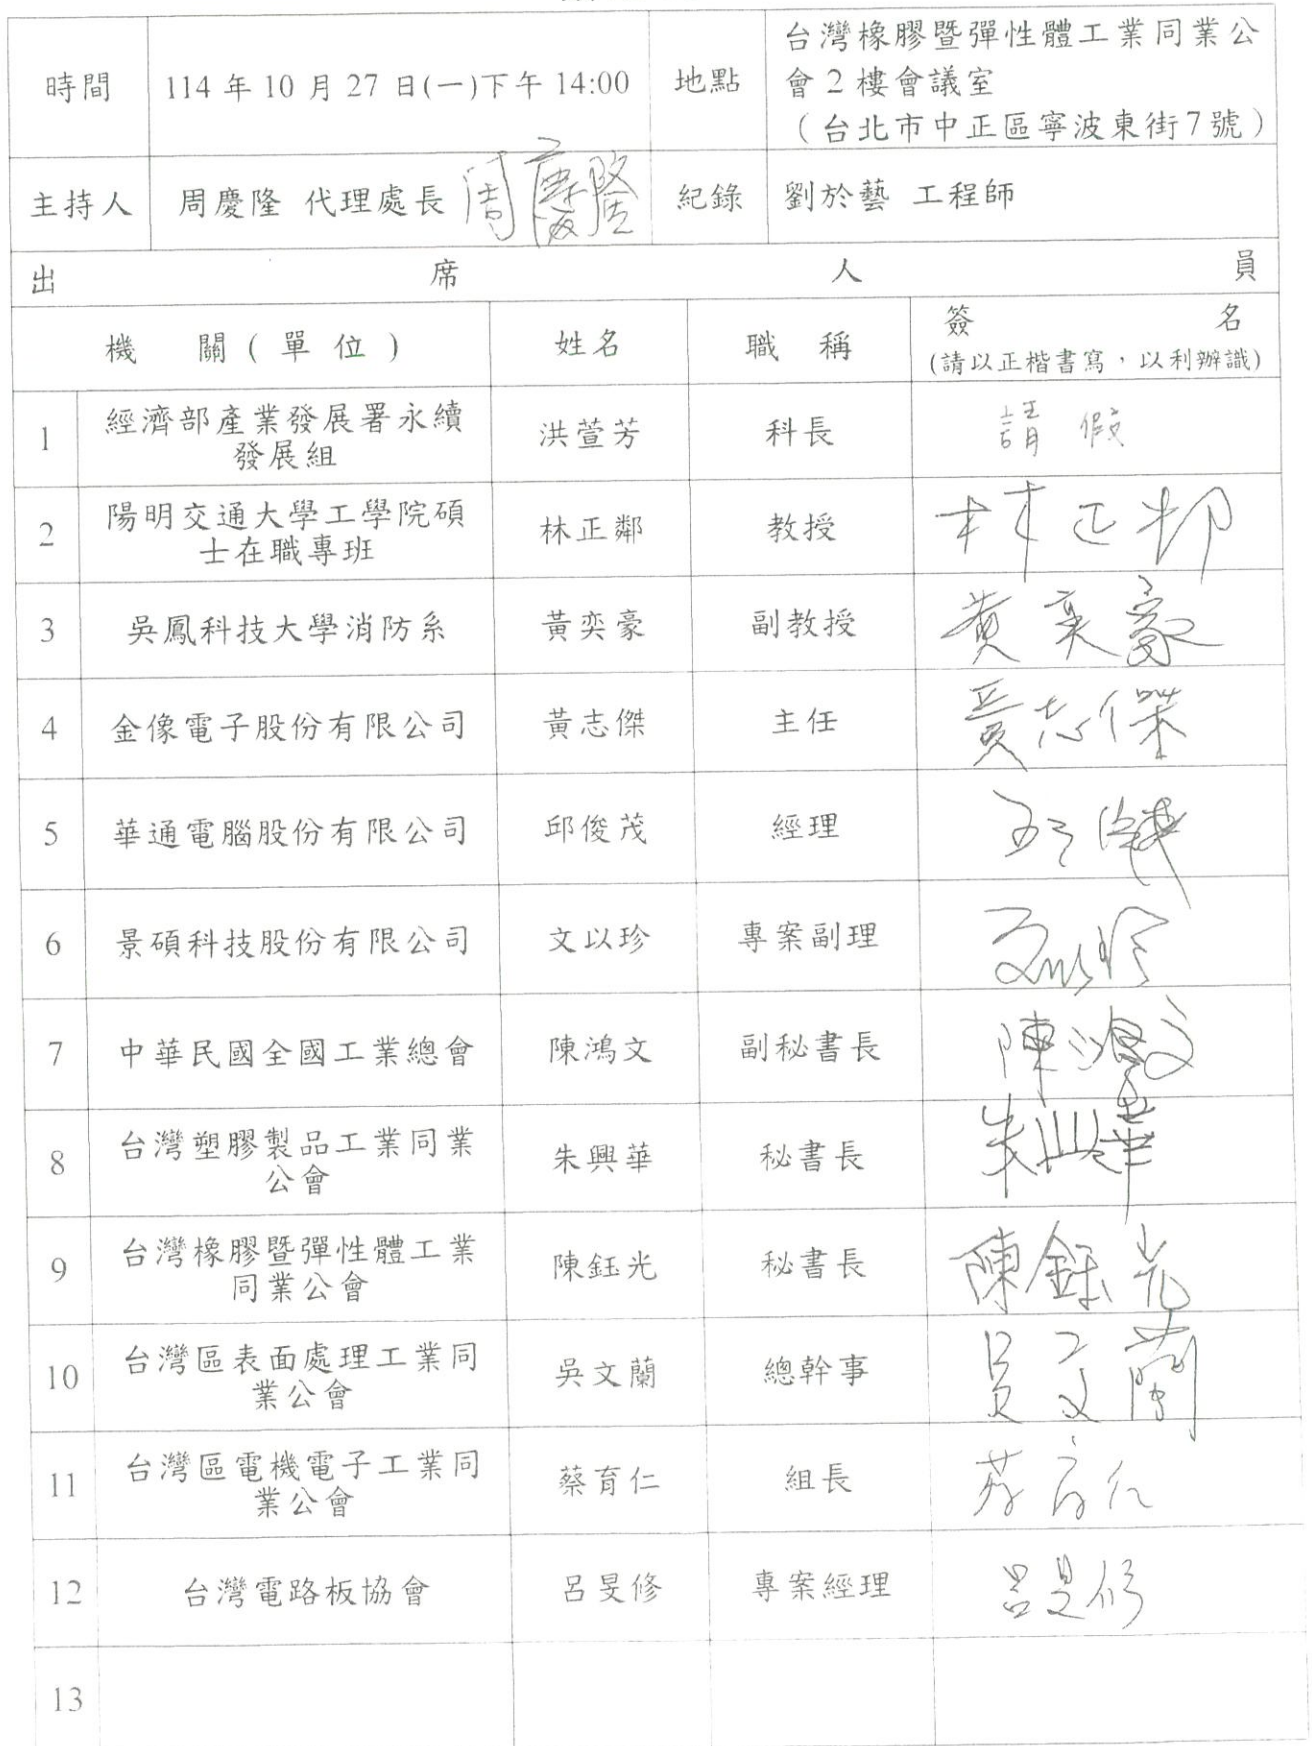 時間 114年10月27日(一)下午14:00 地點 台灣橡膠暨彈性體工業同業公
會2樓會議室
(台北市中正區寧波東街7號)
主持人 周慶隆 代理處長 周慶隆 紀錄 劉於藝 工程師
出席人員
機關(單位) 姓名 職稱 簽名
(請以正楷書寫,以利辦識)
1 經濟部產業發展署永續
發展組 洪萱芳 科長 請假
2 陽明交通大學工學院碩
士在職專班 林正鄰 教授 林正邻
3 吳鳳科技大學消防系 黃奕豪 副教授 黃奕豪
4 金像電子股份有限公司 黃志傑 主任 黃志傑
5 華通電腦股份有限公司 邱俊茂 經理
6 景碩科技股份有限公司 文以珍 專案副理 文以珍
7 中華民國全國工業總會 陳鴻文 副秘書長 陳鴻文
8 台灣塑膠製品工業同業
公會 朱興華 秘書長 朱興華
9 台灣橡膠暨彈性體工業
同業公會 陳鈺光 秘書長 陳鈺光
10 台灣區表面處理工業同
業公會 吳文蘭 總幹事 吳文蘭
11 台灣區電機電子工業同
業公會 蔡育仁 組長 蔡育仁
12 台灣電路板協會 呂旻修 專案經理 呂旻修
13